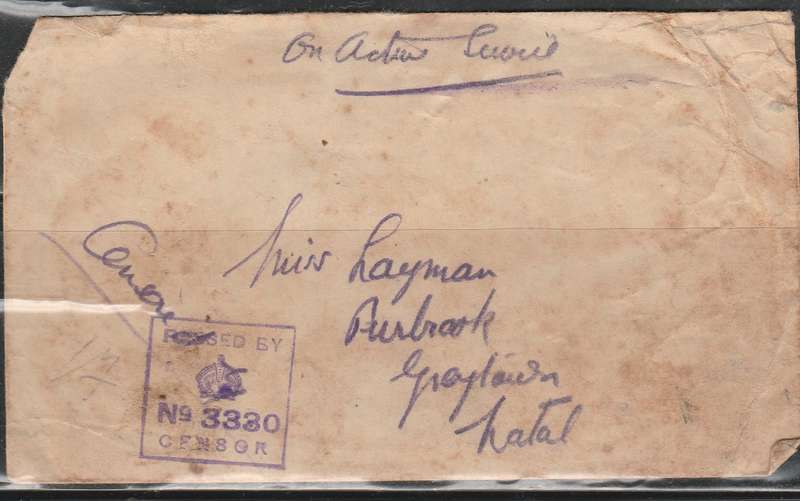 On Active Service
Miss Layman
Purbrook
Greytown
Natal
PASSED BY
No 3330
CENSOR